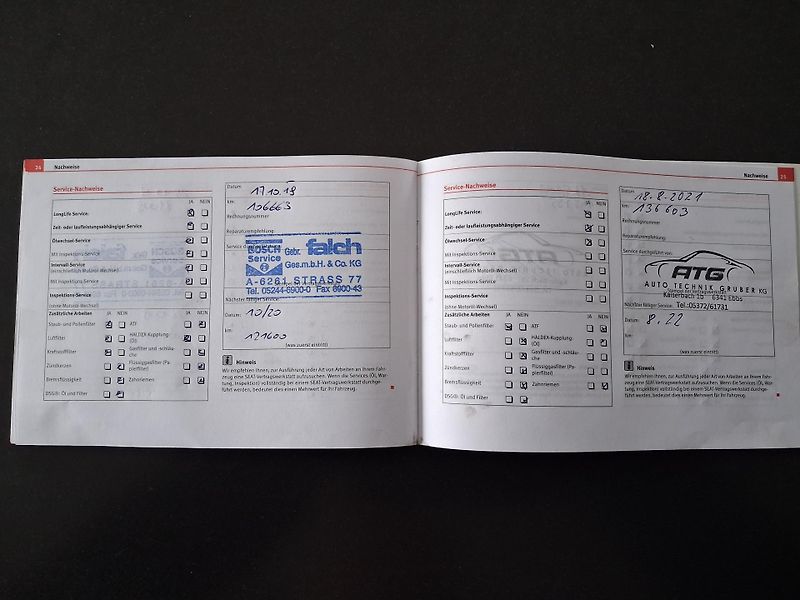 24 Nachweise
Service-Nachweise
JA NEIN
LongLife Service:
Zeit- oder laufleistungsabhängiger Service
Ölwechsel-Service
Mit Inspektions-Service
Intervall-Service
(einschließlich Motoröl-Wechsel)
Mit Inspektions-Service
Inspektions-Service
(ohne Motoröl-Wechsel)
Zusätzliche Arbeiten JA NEIN JA NEIN
Staub- und Pollenfilter ATF
Luftfilter HALDEX-Kupplung:
(Öl)
Kraftstofffilter Gasfilter und -schläu-
che
Zündkerzen Flüssiggasfilter (Pa-
pierfilter)
Bremsflüssigkeit Zahnriemen
DSG®: Öl und Filter
Datum: 17.10.19
km: 106663
Rechnungsnummer
Reparaturempfehlung:
Service durchgeführt von:
BOSCH
Service
Gebr. falch
Ges.m.b.H. & Co. KG
A-6261 STRASS 77
Tel. 05244-6900-0 Fax 6900-43
Nächster fälliger Service:
Datum: 10/20
km: 121600
(was zuerst eintritt)
Hinweis
Wir empfehlen Ihnen, zur Ausführung jeder Art von Arbeiten an Ihrem Fahr-
zeug eine SEAT-Vertragswerkstatt aufzusuchen. Wenn die Services (Öl, War-
tung, Inspektion) vollständig bei einem SEAT-Vertragswerkstatt durchge-
führt werden, bedeutet dies einen Mehrwert für Ihr Fahrzeug.
Nachweise 25
Service-Nachweise
JA NEIN
LongLife Service:
Zeit- oder laufleistungsabhängiger Service
Ölwechsel-Service
Mit Inspektions-Service
Intervall-Service
(einschließlich Motoröl-Wechsel)
Mit Inspektions-Service
Inspektions-Service
(ohne Motoröl-Wechsel)
Zusätzliche Arbeiten JA NEIN JA NEIN
Staub- und Pollenfilter ATF
Luftfilter HALDEX-Kupplung:
(Öl)
Kraftstofffilter Gasfilter und -schläu-
che
Zündkerzen Flüssiggasfilter (Pa-
pierfilter)
Bremsflüssigkeit Zahnriemen
DSG®: Öl und Filter
Datum: 18.8.2021
km: 136603
Rechnungsnummer
Reparaturempfehlung:
Service durchgeführt von:
ATG
AUTO TECHNIK GRUBER KG
Kaiserbach 1b 6341 Ebbs
Tel.:05372/61731
Nächster fälliger Service:
Datum: 8.22
km:
(was zuerst eintritt)
Hinweis
Wir empfehlen Ihnen, zur Ausführung jeder Art von Arbeiten an Ihrem Fahr-
zeug eine SEAT-Vertragswerkstatt aufzusuchen. Wenn die Services (Öl, War-
tung, Inspektion) vollständig bei einem SEAT-Vertragswerkstatt durchge-
führt werden, bedeutet dies einen Mehrwert für Ihr Fahrzeug.